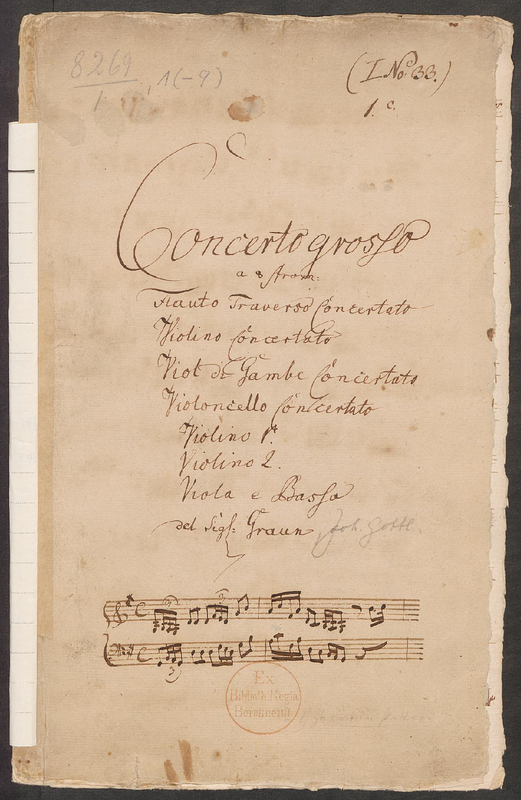 8269
1
, 1(-9)
(I No 33.)
1. c.
Concerto grosso
a 8 strom:
Flauto Traverso Concertato
Violino Concertato
Viol di Gambe Concertato
Violoncello Concertato
Violino 1.
Violino 2.
Viola e Basso
del Sigr: Graun Joh. Gottl.
3
3
3
Ex
Biblioth. Regia
Berolinensi.